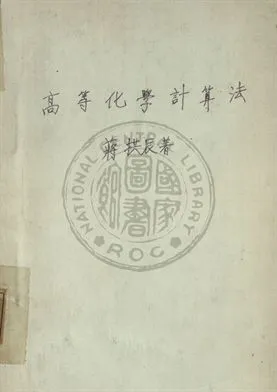 高等化學計算法
蔣拱辰著
NATIONAL CENTRAL LIBRARY
國家圖書館
ROC